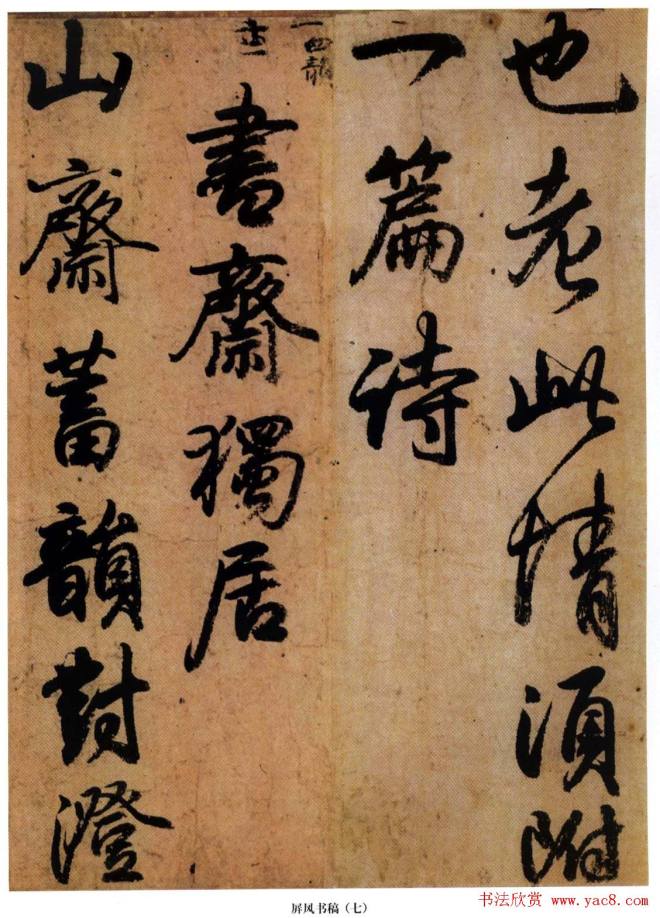 也老此情須附
一篇詩
一四韻
書齋獨居
山齋蓄韻對澄
屏风书稿（七）
书法欣赏 www.yac8.com